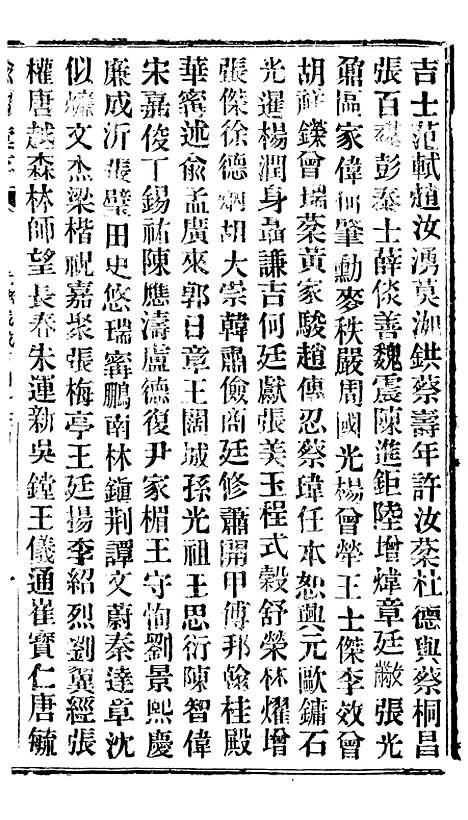 吉士范軾趙汝湧莫洳鉷蔡壽年許汝棻杜德輿蔡桐昌
張百祺彭泰士薛倓善魏震陳進鉅陸增煒章廷黻張光
鼐區家偉何肇勳麥秩嚴周國光楊曾犖王士傑李效曾
胡祥鑅曾瑞棻黃家駿趙傳忍蔡瑋任本恕興元歐鏞石
光暹楊潤身聶謙吉何廷獻張美玉程式穀舒榮林燿增
張傑徐德炯胡大崇韓肅儉商廷修蕭開甲傅邦翰桂殿
華蜜述俞孟廣來郭日章王闊城孫光祖王思衍陳智偉
宋嘉俊丁錫祐陳應濤盧德復尹家楣王守恂劉景熙慶
廉成沂張璧田史悠瑞甯鵬南林鎭荆譚文蔚秦達章沈
似爌文杰梁楷祝嘉聚張梅亭王廷揚李紹烈劉翼經張
權唐越森林師望長春朱運新吳鏜王儀通崔寶仁唐毓